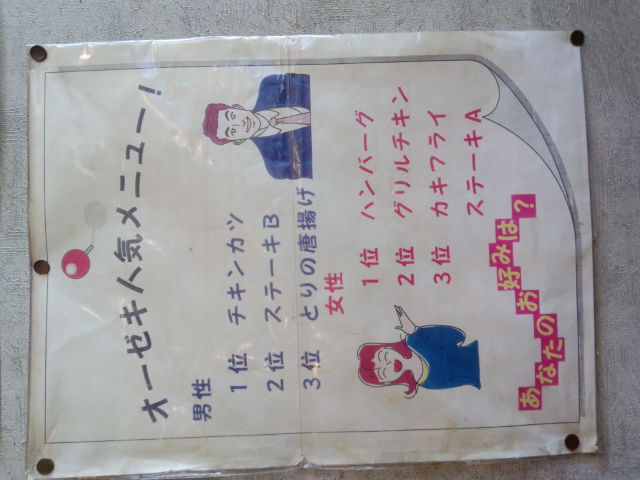 オーゼキ人気メニュー!
男性
1位 チキンカツ
2位 ステーキB
3位 とりの唐揚げ
女性
1位 ハンバーグ
2位 グリルチキン
3位 カキフライ
ステーキA
あなたのお好みは?